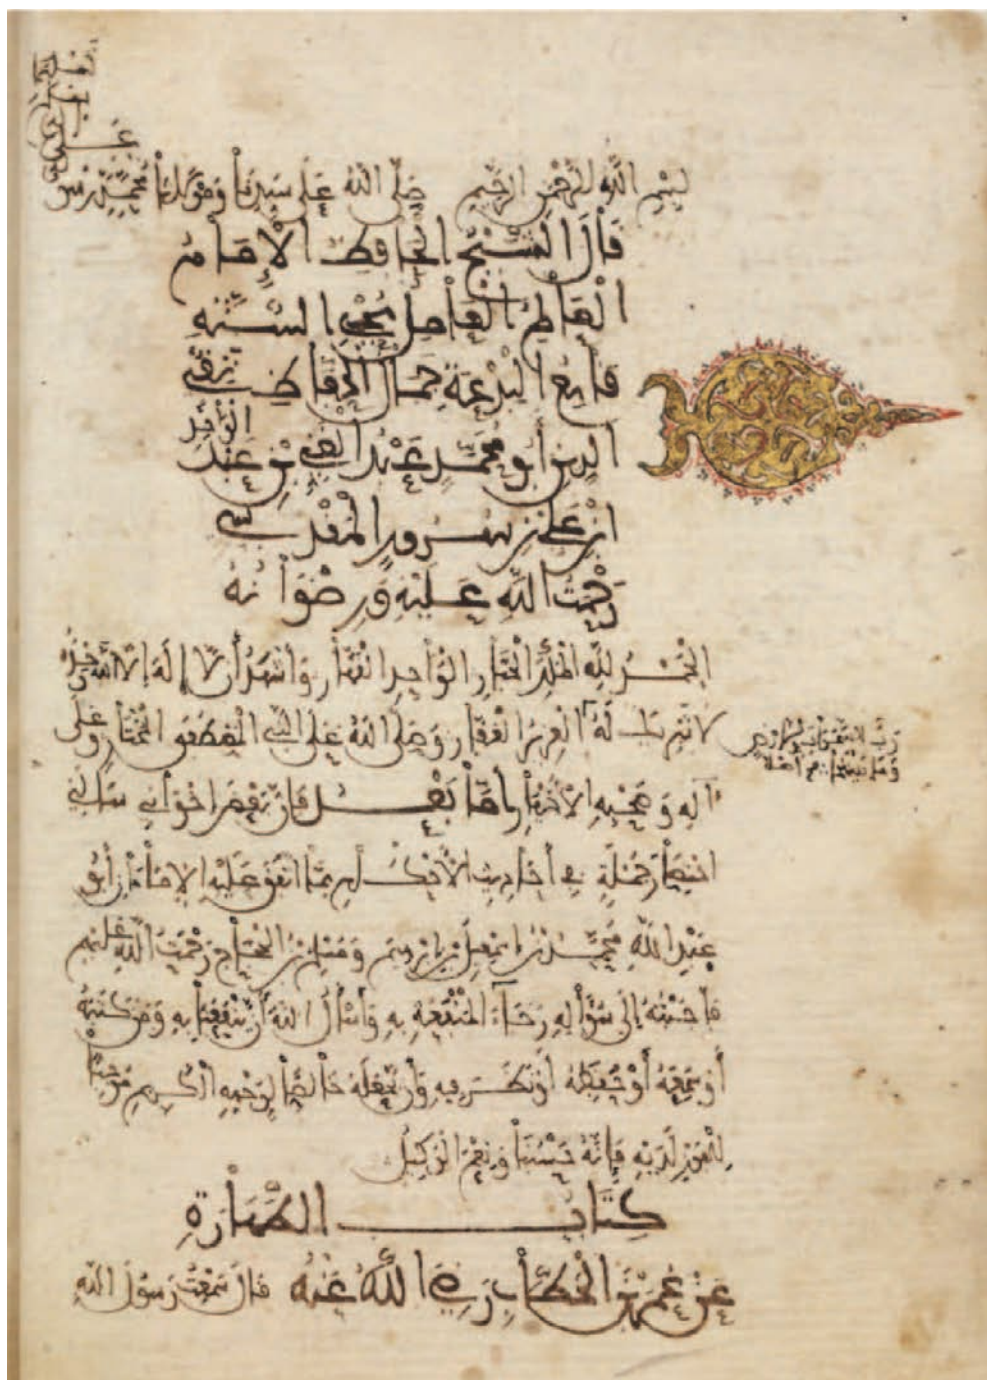 بسم الله الرحمن الرحيم صلى الله على سيدنا ومولانا محمد
قال الشيخ الحافظ الإمام
العالم العامل محي السنة
قامع البدعة جمال الحفاظ تقي
الدين أبو محمد عبد الغني بن عبد الواحد
ابن علي بن سرور المقدسي
رحمت الله عليه ورضوانه
الحمد لله الملك الجبار الواحد القهار وأشهد أن لا إله إلا الله وحده
لا شريك له العزيز الغفار وصلى الله على النبي المصطفى المختار وعلى
رب السموات والأرض
وما بينهما
آله وصحبه الأخيار أما بعد فإن بعض إخواني سألني
اختصار جملة في أحاديث الأحكام مما اتفق عليه الإمامان أبو
عبد الله محمد بن إسمعيل بن إبرهيم ومسلم بن الحجاج رحمت الله عليهم
فأجبته إلى سؤاله رجاء المنفعة به وأسأل الله أن ينفعنا به ومن كتبه
أو سمعه أو حفظه أو نظر فيه وأن يجعله خالصا لوجهه الكريم موجبا
للفوز لديه فإنه حسبنا ونعم الوكيل
كتاب الطهارة
عن عمر بن الخطاب رضي الله عنه قال سمعت رسول الله